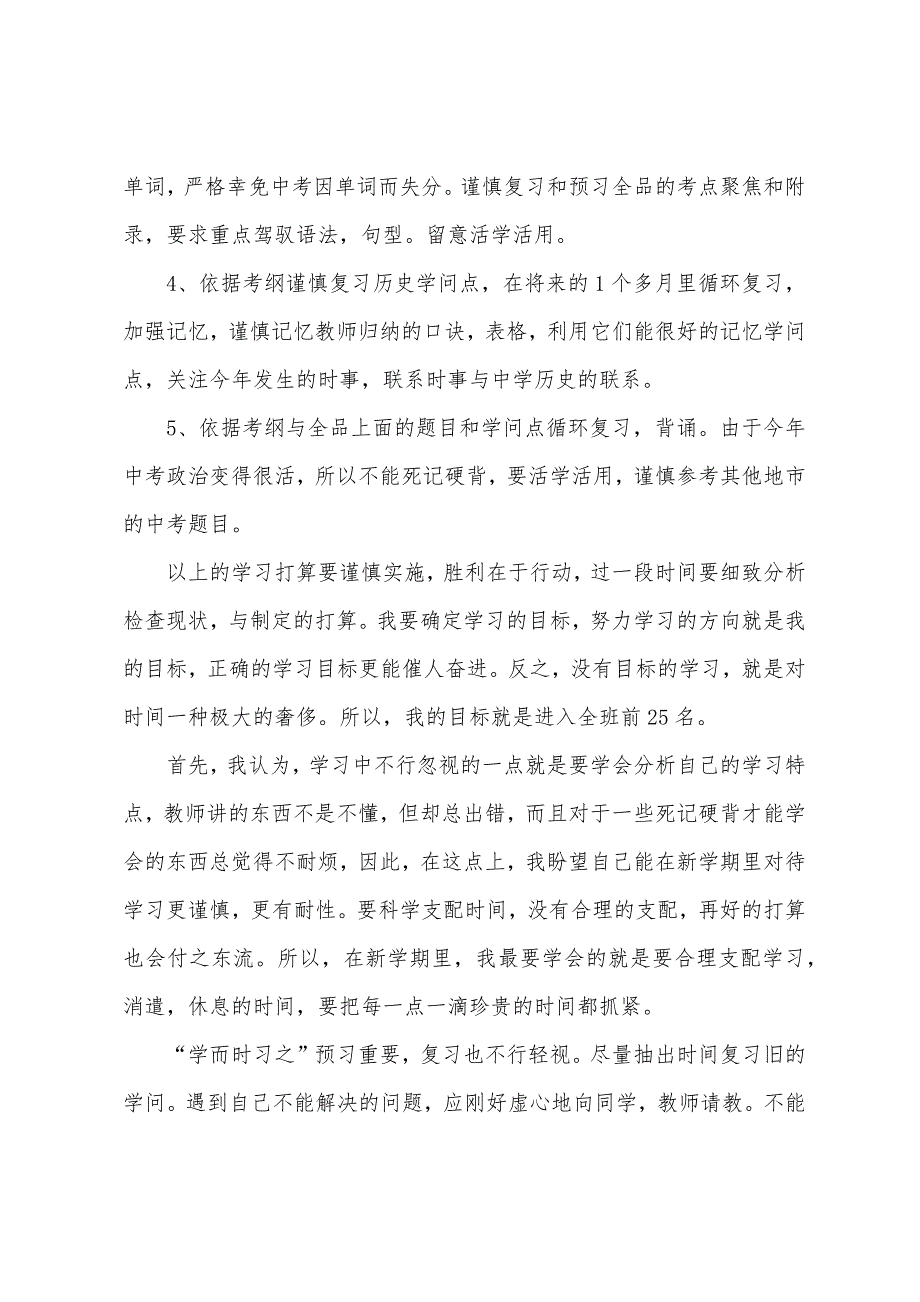 单词，严格幸免中考因单词而失分。谨慎复习和预习全品的考点聚焦和附
录，要求重点驾驭语法，句型。留意活学活用。
4、依据考纲谨慎复习历史学问点，在将来的 1 个多月里循环复习，
加强记忆，谨慎记忆教师归纳的口诀，表格，利用它们能很好的记忆学问
点，关注今年发生的时事，联系时事与中学历史的联系。
5、依据考纲与全品上面的题目和学问点循环复习，背诵。由于今年
中考政治变得很活，所以不能死记硬背，要活学活用，谨慎参考其他地市
的中考题目。
以上的学习打算要谨慎实施，胜利在于行动，过一段时间要细致分析
检查现状，与制定的打算。我要确定学习的目标，努力学习的方向就是我
的目标，正确的学习目标更能催人奋进。反之，没有目标的学习，就是对
时间一种极大的奢侈。所以，我的目标就是进入全班前 25 名。
首先，我认为，学习中不行忽视的一点就是要学会分析自己的学习特
点，教师讲的东西不是不懂，但却总出错，而且对于一些死记硬背才能学
会的东西总觉得不耐烦，因此，在这点上，我盼望自己能在新学期里对待
学习更谨慎，更有耐性。要科学支配时间，没有合理的支配，再好的打算
也会付之东流。所以，在新学期里，我最要学会的就是要合理支配学习，
消遣，休息的时间，要把每一点一滴珍贵的时间都抓紧。
“学而时习之”预习重要，复习也不行轻视。尽量抽出时间复习旧的
学问。遇到自己不能解决的问题，应刚好虚心地向同学，教师请教。不能